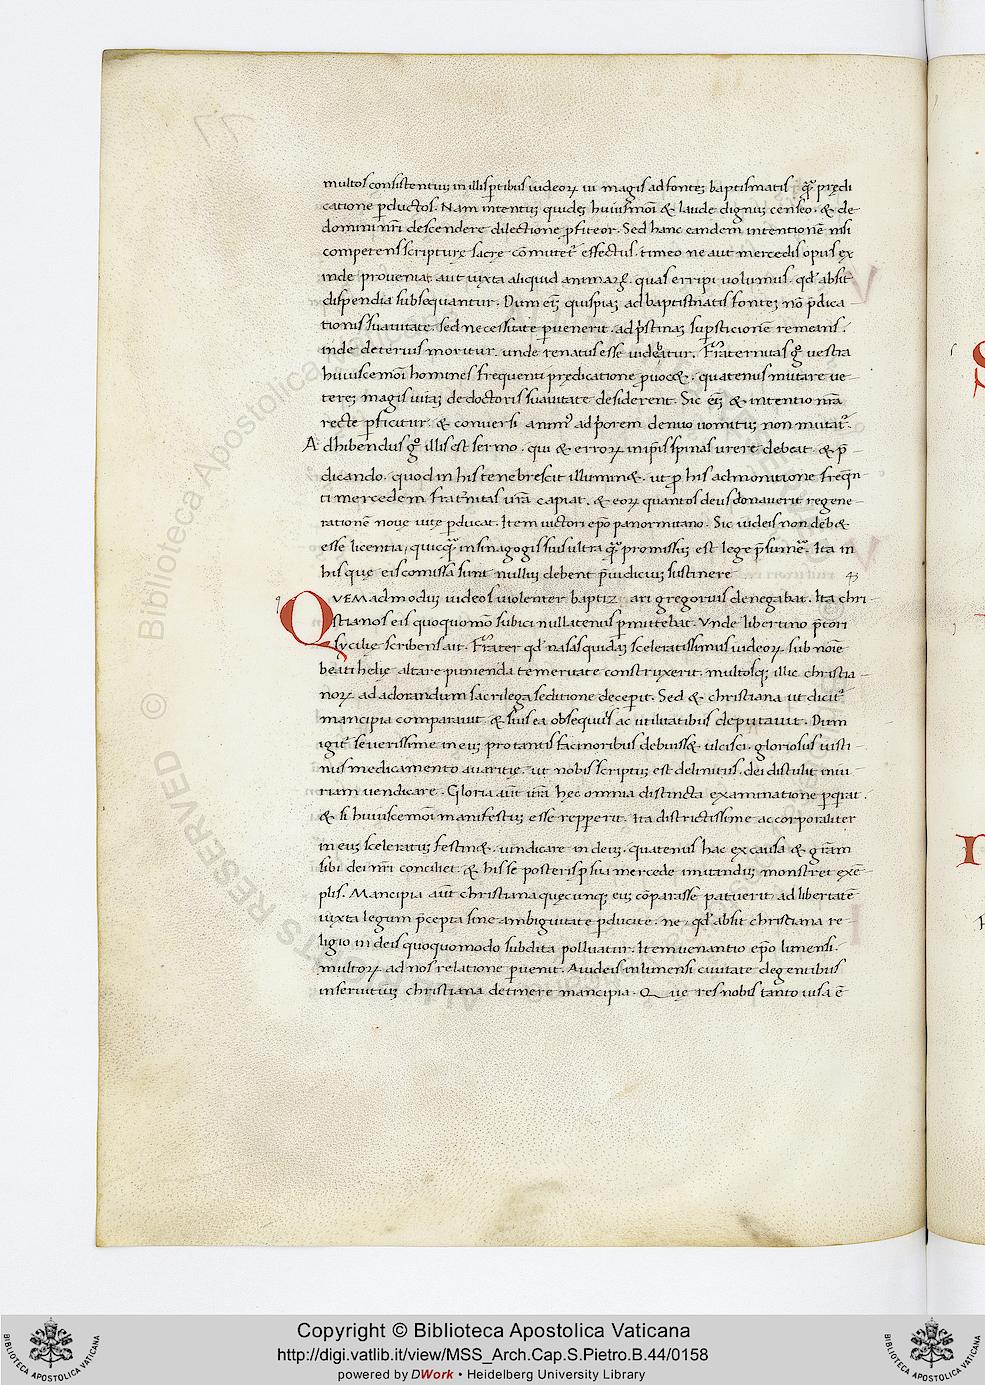 multos consistentiũ in illis ꝑtibus iudeoꝝ ui magis ad fontẽ baptismatis . quã prędi
catione ꝑductos . Nam intentũ quidẽ huiusmõi & laude dignũ censeo . & de
domini nr̃i descendere dilectione ꝓfiteor . Sed hanc eandem intentionẽ nisi
competens scripturę sacre cõmitet᷑ effectus . timeo ne aut mercedis opus ex
inde proueniat aut iuxta aliquid animaꝝ . quas erripi uolumus . qđ absit
dispendia subsequantur . Dum eĩ quispiã ad baptismatis fontẽ nõ p̃dica
tionis suauitate . sed necessitate ꝑuenerit . ad pristinã suꝑsticionẽ remeans .
inde deterius moritur . unde renatus esse uidebatur . Fr̃aternitas g̊ uestra
huiuscemõi homines frequenti prędicatione ꝓuoc& . quatenus mutare ue
terẽ magis uitã de doctoris suauitate desiderent . Sic eĩ & intentio nr̃a
recte ꝑficitur . & conuersi animꝰ ad priorem denuo uomitũ non mutat᷑ .
Adhibendus g̊ illis est sermo . qui & erroꝝ in ipsis spinas urere debeat . & p̃
dicando . quod in his tenebrescit illumin& . ut ꝓ his admonitione frequẽ
ti mercedem frat̃nitas ur̃a capiat . & eoꝝ quantos deus donauerit regene
rationẽ noue uitę ꝑducat . Item uictori epõ panormitano . Sic iudeis non deb&
esse licentia , quicquã in sinagogis suis ultra quã promissũ est lege p̃sumẽ . Ita in
his que eis comissa sunt nullũ debent p̃iudiciũ sustinere 43
QVEMadmodũ iudeos uiolenter baptizari gregorius denegabat . Ita chri
stianos eis quoquomõ subici nullatenus ꝑmittebat . Vnde libertino p̃tori
sycilię scribens ait . Fr̃ater qđ nasas quidã sceleratissimus iudeoꝝ sub noĩe
beati helię altare punienda temeritate construxerit . multosq; illic christia
noꝝ ad adorandum sacrilega seditione deceperit . Sed & christiana ut dicit᷑
mancipia comparauit & suis ea obsequiis ac utilitatibus deputauit . Dum
igit᷑ seuerissime in eũ pro tantis facinoribus debuiss& ulcisci . gloriosus iusti
nus medicamento auaritię . ut nobis scriptũ est delinitus . dei distulit iniu
riam uendicare . Gloria aũt ur̃a hęc omnia districta examinatione ꝑquirat .
& si huiuscemõi manifestũ esse reppererit . Ita districtissime ac corporaliter
in eũ sceleratũ festin& . uindicare in deũ . quatenus hac ex causa & gr̃am
sibi dei nr̃i conciliet . & his se posteris ꝓ sui mercede imitandũ monstret exẽ
plis . Mancipia aũt christiana quęcunq; eũ cõparasse patuerit . ad libertatẽ
iuxta legum p̃cepta sine ambiguitate ꝑducite . ne . qđ absit christiana re
ligio iudeis quoquomodo subdita polluatur . Item uenantio epõ lunensi .
multoꝝ ad nos relatione ꝑuenit . A iudeis in lunensi ciuitate degentibus
in seruitiũ christiana detinere mancipia . Quę res nobis tanto uisa ẽ
Copyright © Biblioteca Apostolica Vaticana
http://digi.vatlib.it/view/MSS_Arch.Cap.S.Pietro.B.44/0158
powered by DWork • Heidelberg University Library